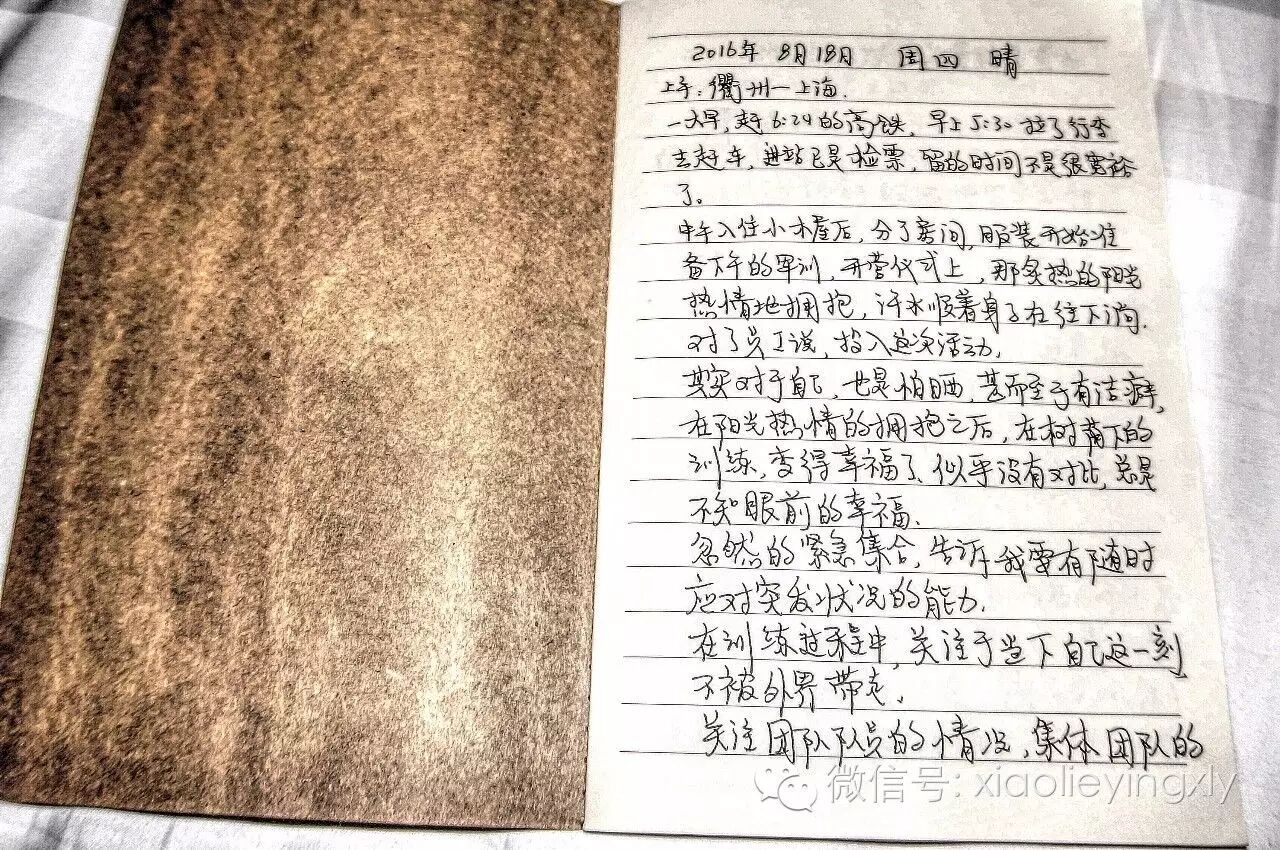 2016年 8月18日 周四 晴
上午:衢州—上海.
一大早,赶6:24的高铁,早上5:30拉了行李
去赶车,进站已是检票,留的时间不是很宽裕
了。
中午入住小木屋后,分了房间,服装开始准
备下午的军训,开营仪式上,那炙热的阳光
热情地拥抱,汗水顺着身子在往下淌.
对了员工说,投入这次活动.
其实对于自己,也是怕晒,甚而至于有洁癖,
在阳光热情的拥抱之后,在树荫下的
训练,变得幸福了、似乎没有对比,总是
不知眼前的幸福.
忽然的紧急集合,告诉我要有随时
应对突发状况的能力.
在训练过程中,关注于当下自己这一刻
不被外界带走.
关注团队队员的情况,集体团队的
微信号: xiaolieyingxly